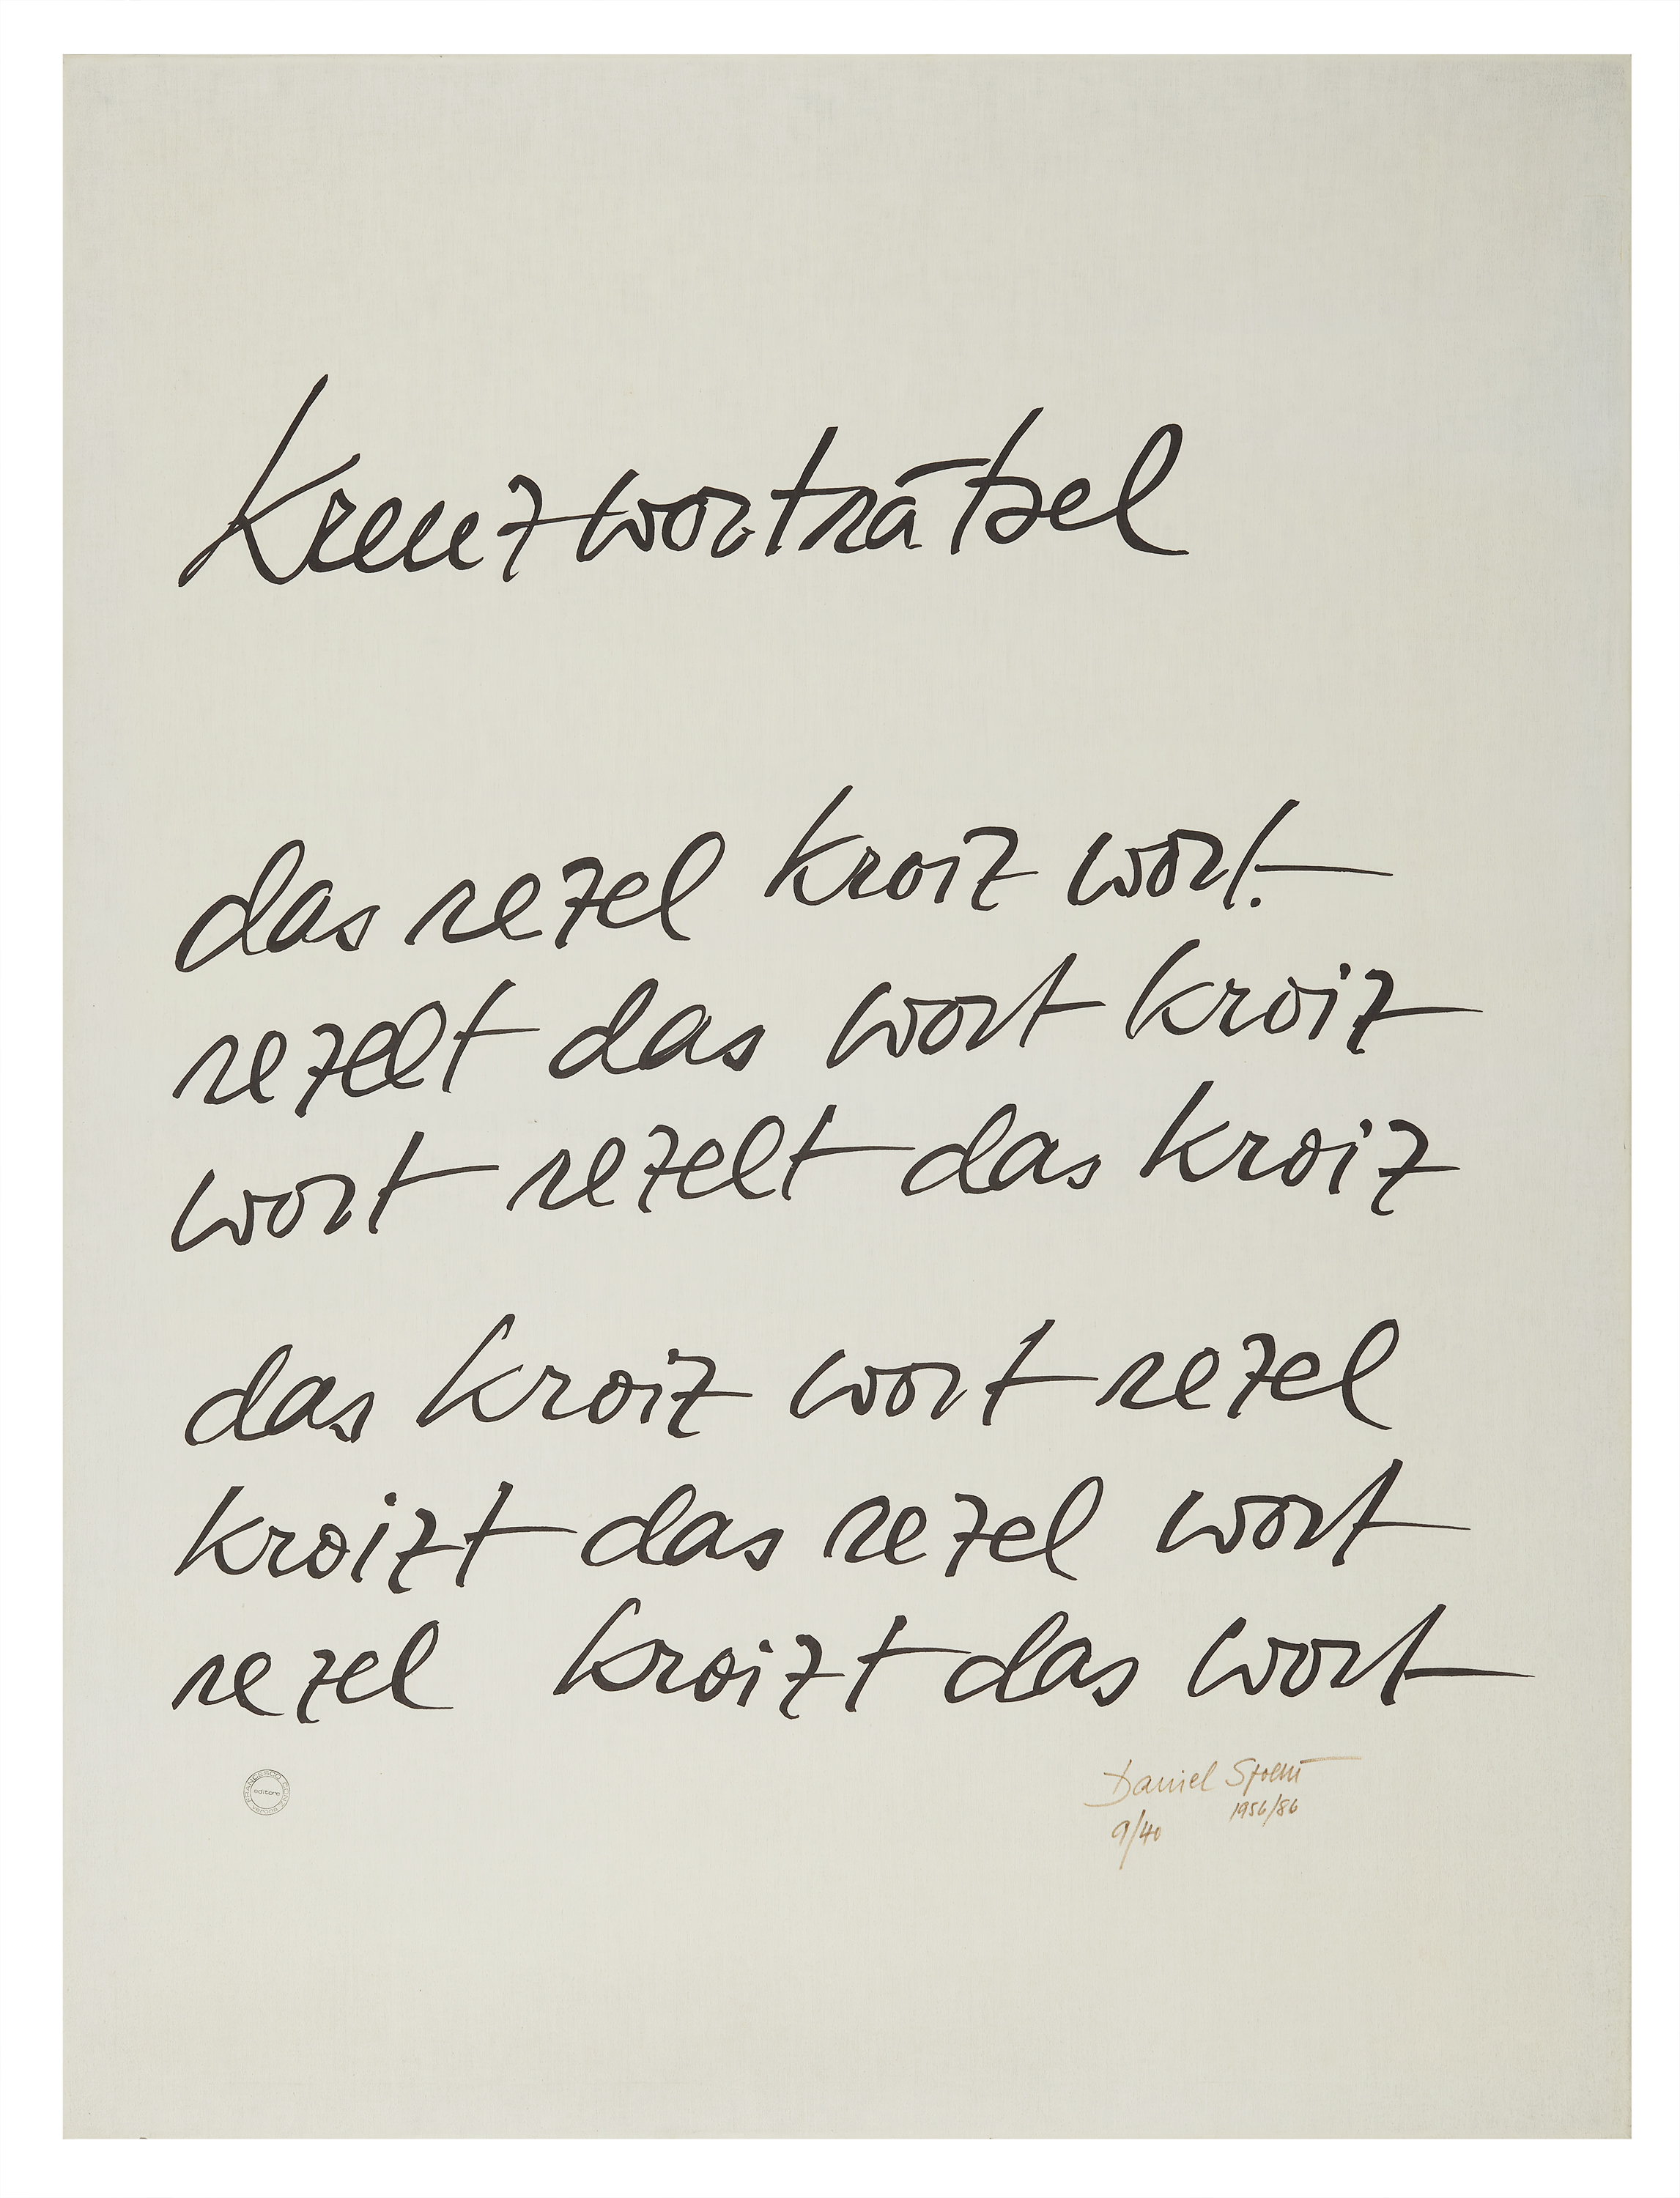 Kreuzworträtsel
das rezel kroiz wort.
rezelt das wort kroiz
wort rezelt das kroiz
das kroiz wort rezel
kroizt das rezel wort
rezel kroizt das wort
FRANCESCO CONZ
editore
Daniel Spoerri
1956/86
9/40